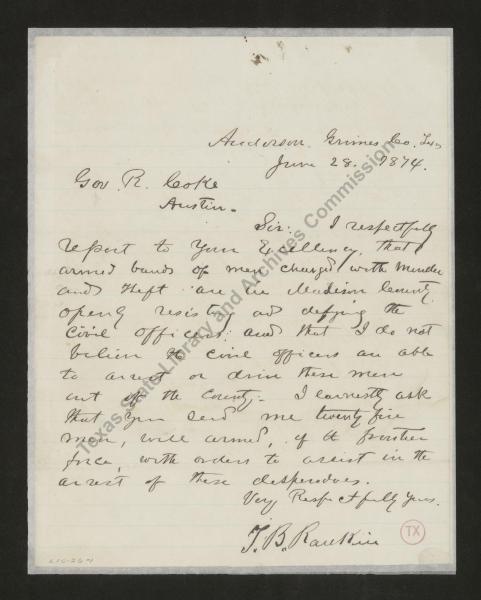 Anderson Grimes Co. Tex
June 28. 1874.
Gov. R. Coke
Austin.
Sir: I respectfully
report to Your Excellency, that
armed bands of men charged with Murder
and theft are in Madison County
openly resisting and defying the
Civil Officers and that I do not
believe the civil officers are able
to arrest or drive these men
out of the County. I earnestly ask
that you send me twenty five
men, well armed, of the frontier
force, with orders to assist in the
arrest of these desperadoes.
Very Respectfully Yours.
T. B. Rankin
TX
Texas State Library and Archives Commission